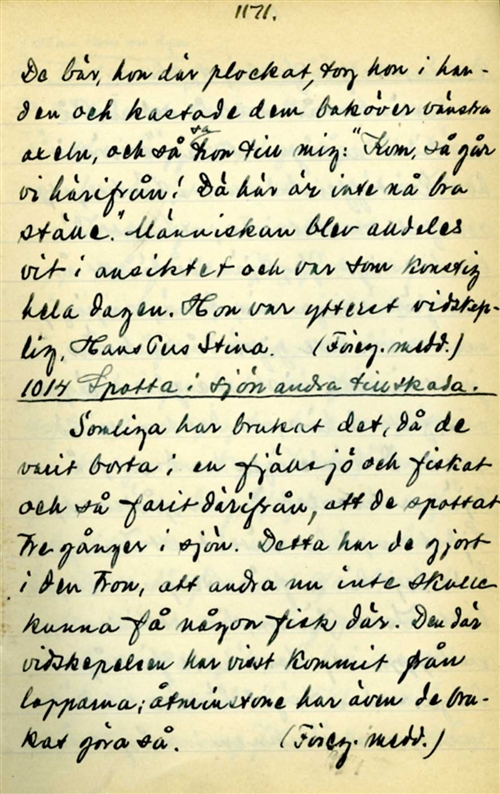 1171.
De bär, hon där plockat, tog hon i han-
den och kastade dem bakōver vänstra
axeln, och så sa hon till mig: "Kom, så går
vi härifrån! Dä här är inte nå bra
ställe." Människan blev alldeles
vit i ansiktet och var som konstig
hela dagen. Hon var ytterst vidskep-
lig, Hans Pers Stina. (Föreg. medd.)
1014 Spotta i sjön andra till skada.
Somliga har brukat det, då de
varit borta i en fjällsjö och fiskat
och så farit därifrån, att de spottat
tre gånger i sjön. Detta har de gjort
i den tron, att andra nu inte skulle
kunna få någon fisk där. Den där
vidskepelsen har visst kommit från
lapparna; åtminstone har även de bru-
kat göra så. (Föreg. medd.)